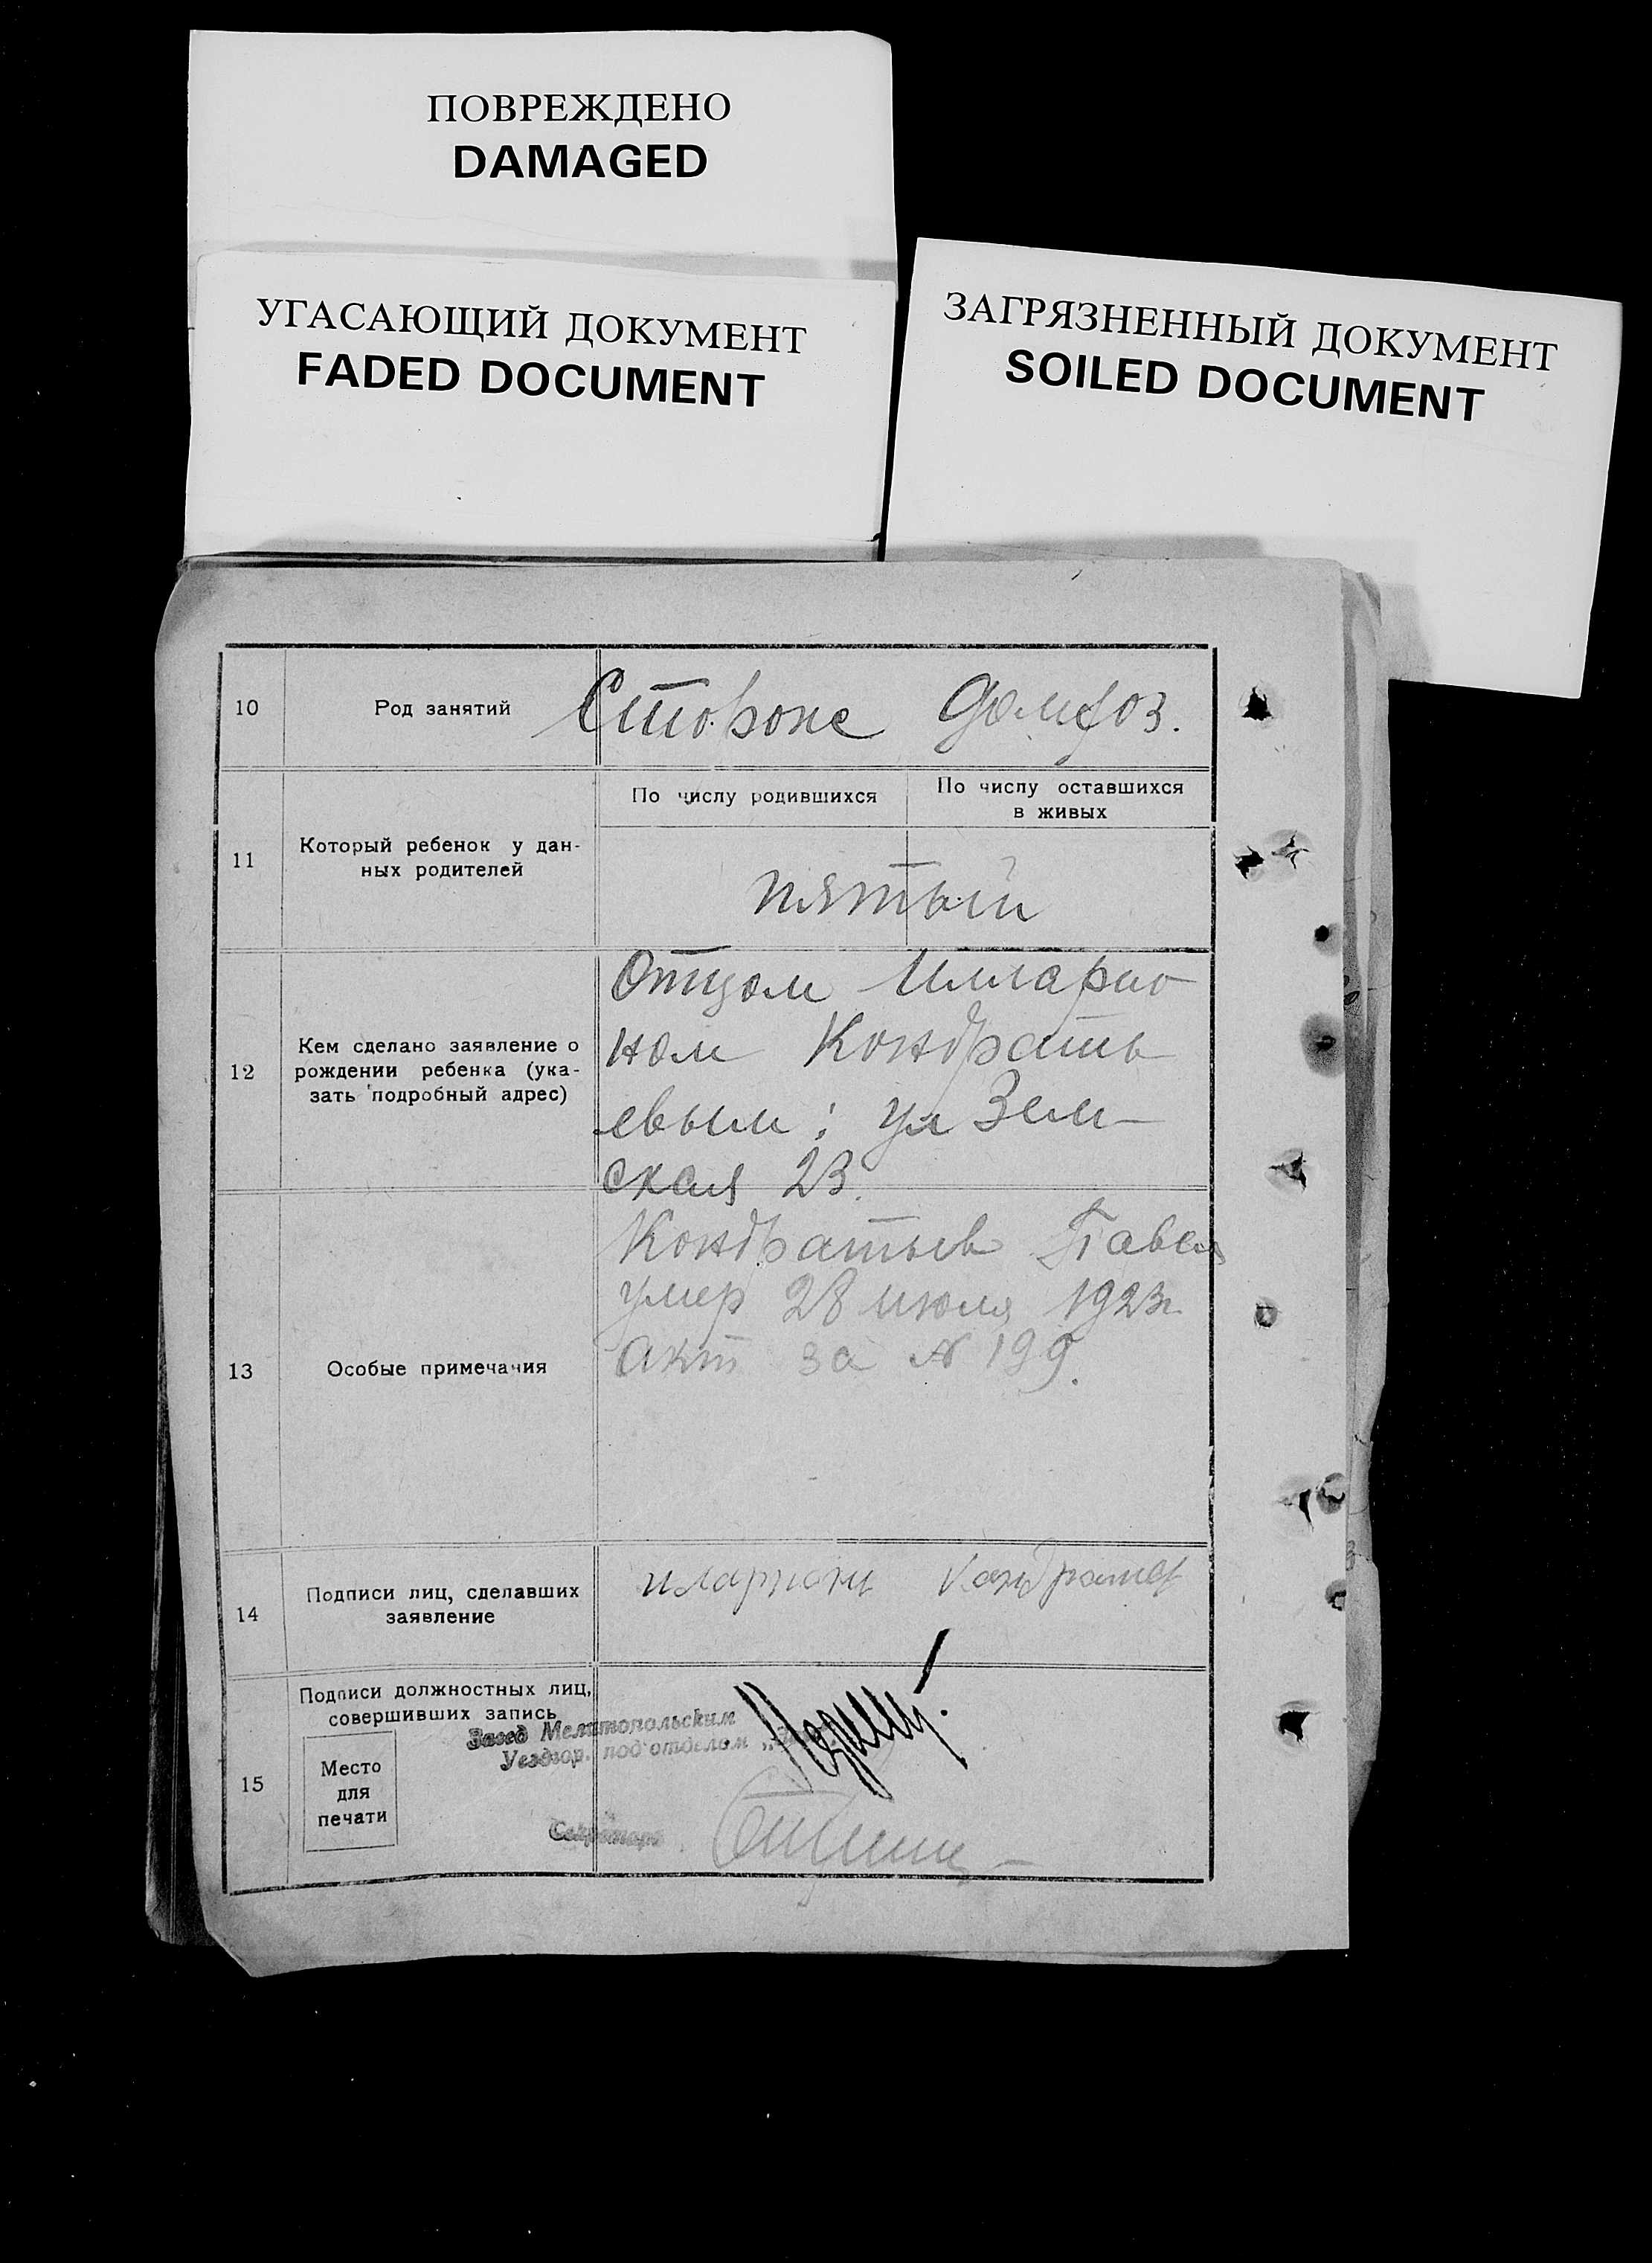 ПОВРЕЖДЕНО
DAMAGED
УГАСАЮЩИЙ ДОКУМЕНТ
FADED DOCUMENT
ЗАГРЯЗНЕННЫЙ ДОКУМЕНТ
SOILED DOCUMENT
10
Род занятий
Сторож домхоз.
11
Который ребенок у дан-
ных родителей
По числу родившихся
По числу оставшихся
в живых
пятый
12
Кем сделано заявление о
рождении ребенка (ука-
зать подробный адрес)
Отцом Илларио
ном Кондрать
евым; ул Зем-
ская 23.
13
Особые примечания
Кондратьев Павел
умер 28 июля 1923г.
акт за № 199.
14
Подписи лиц, сделавших
заявление
иларион Кандратев
15
Подписи должностных лиц,
совершивших запись
Место
для
печати
Завед Мелитопольским
Уездгор. подотделом
Секретарь